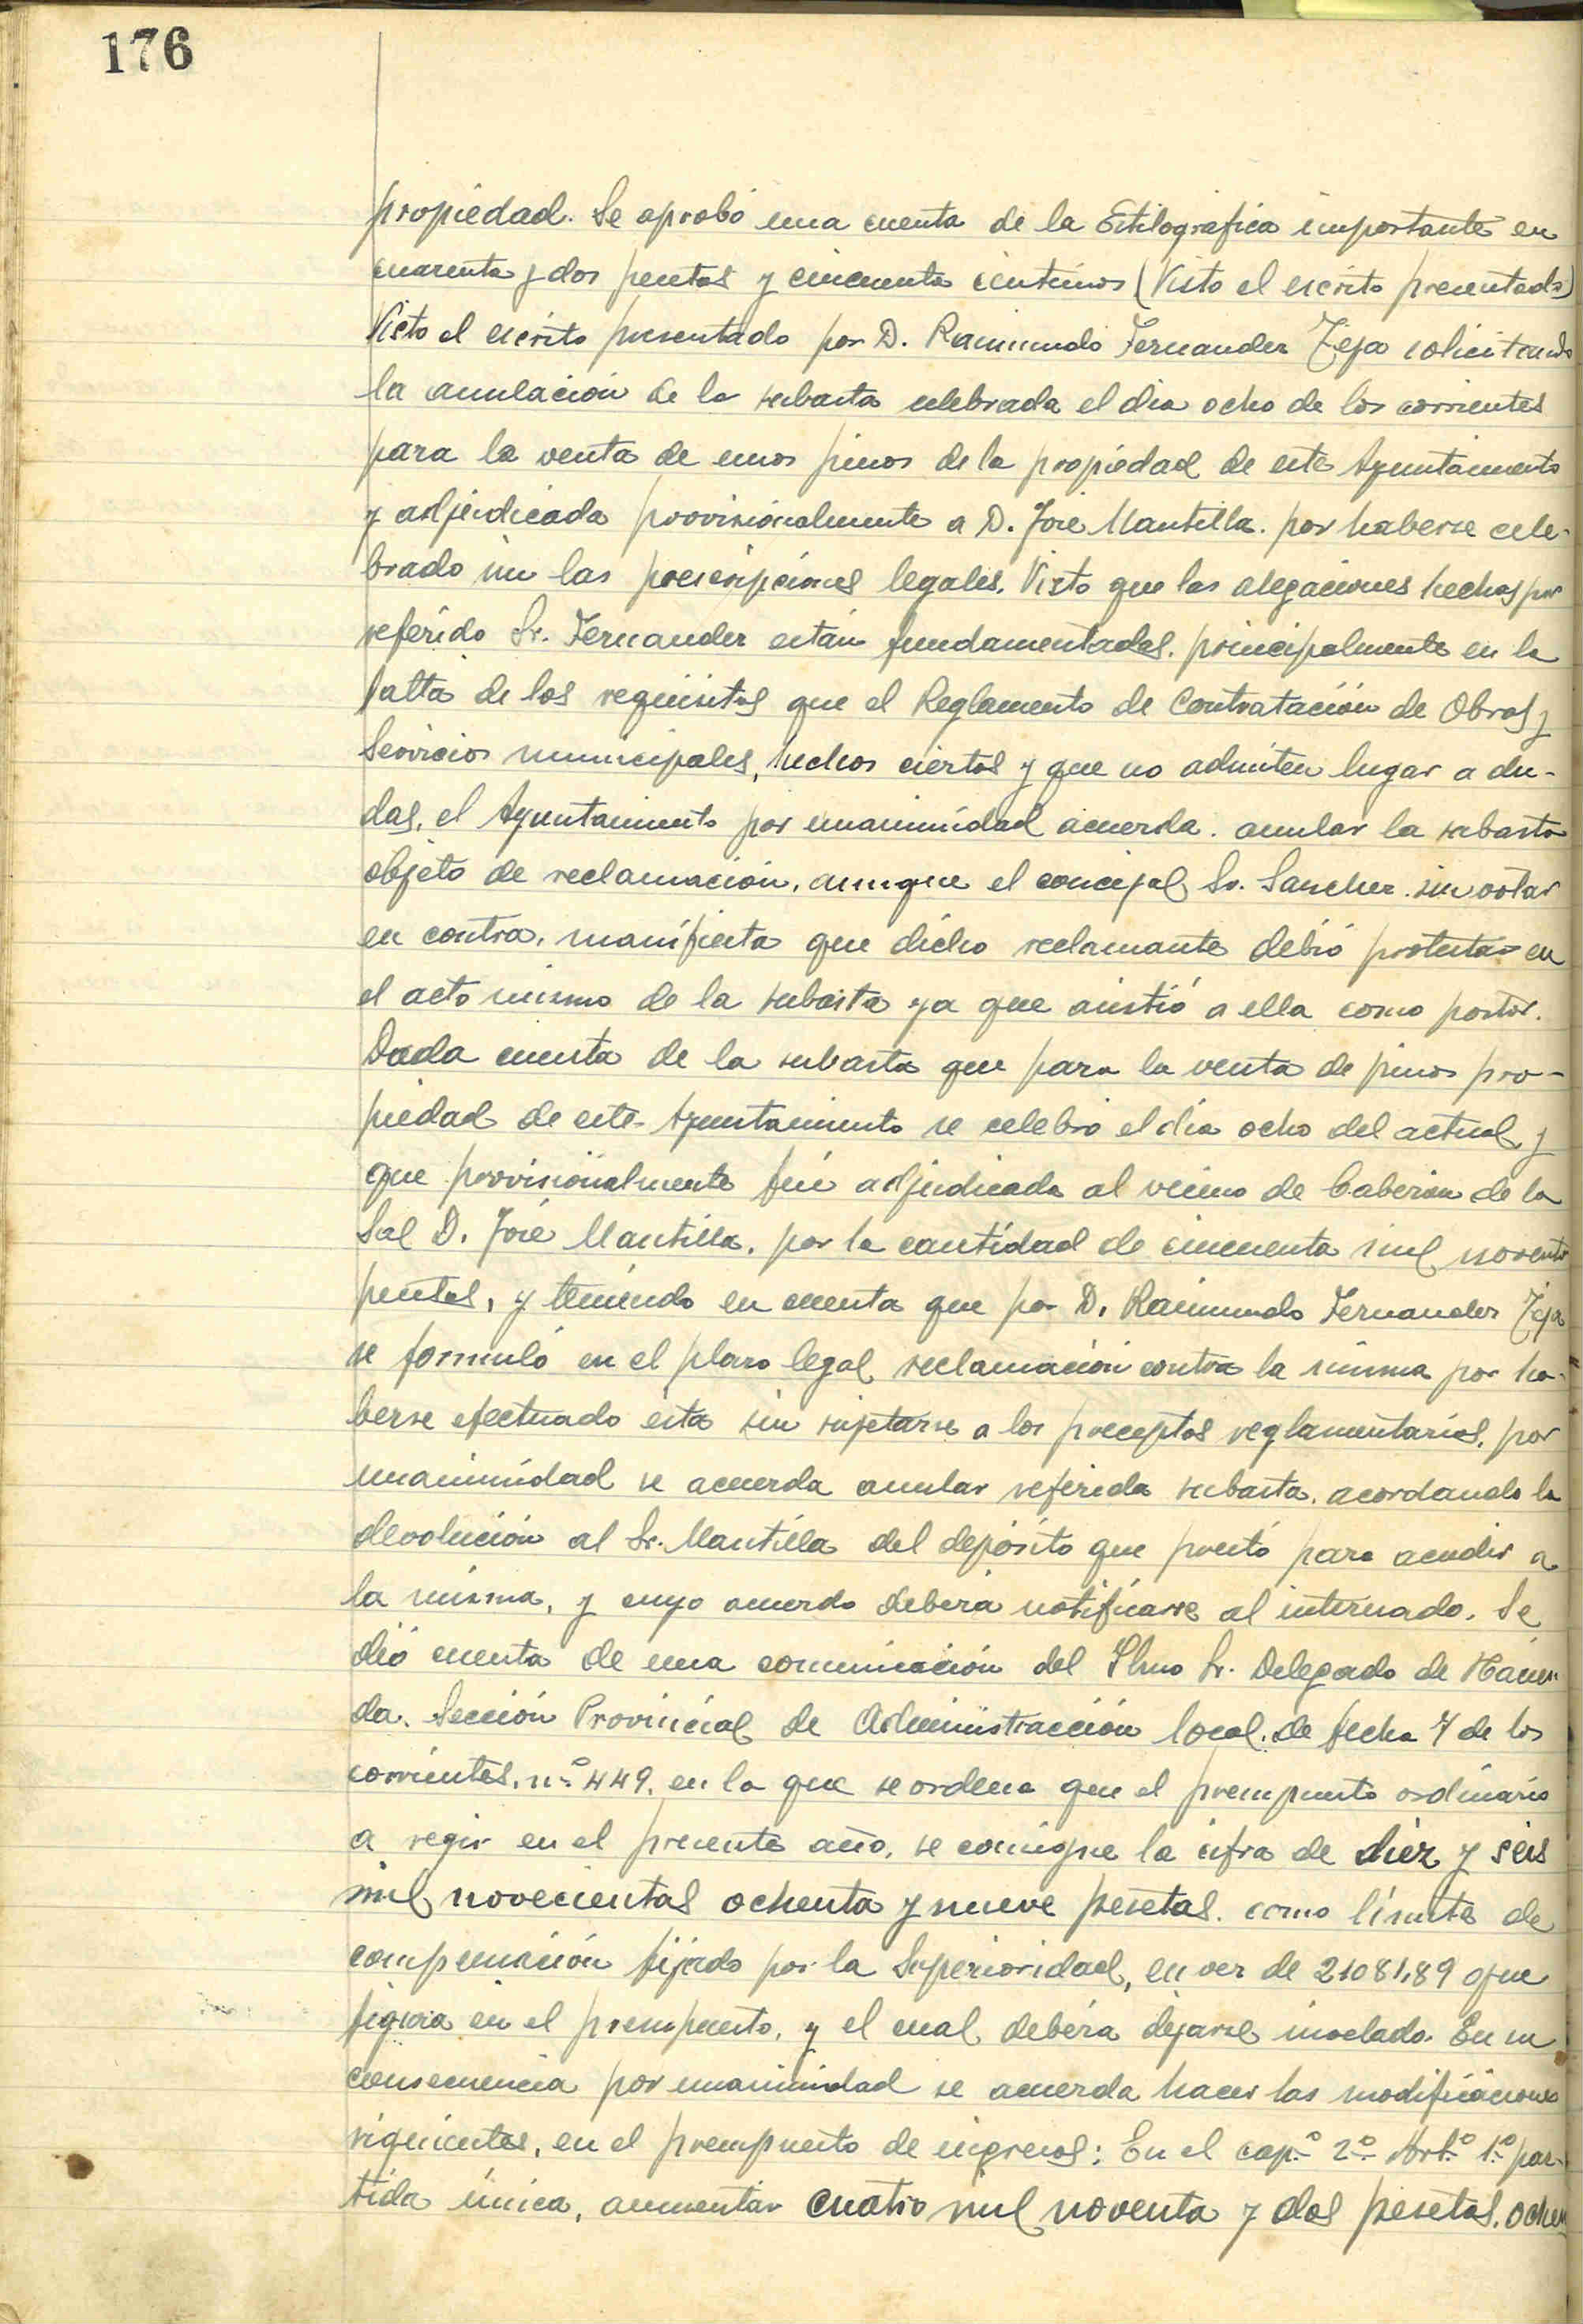 176
propiedad. Se aprobó una cuenta de la Estilografica importante en
cuarenta y dos pesetas y cincuenta centimos (Visto el escrito presentado)
Visto el escrito presentado por D. Raimundo Fernandez Teja solicitando
la anulación de la subasta celebrada el dia ocho de los corrientes
para la venta de unos pinos de la propiedad de este Ayuntamiento
y adjudicada provisionalmente a D. José Mantilla. por haberse cele-
brado sin las prescripciones legales. Visto que las alegaciones hechas por
referido Sr. Fernandez están fundamentadas. principalmente en la
falta de los requisitos que el Reglamento de Contratación de Obras y
Servicios municipales, hechos ciertos y que no admiten lugar a du-
das, el Ayuntamiento por unanimidad acuerda. anular la subasta
objeto de reclamación, aunque el concejal Sr. Sanchez. sin votar
en contra, manifiesta que dicho reclamante debió protestar en
el acto mismo de la subasta ya que asistió a ella como postor.
Dada cuenta de la subasta que para la venta de pinos pro-
piedad de este Ayuntamiento se celebró el día ocho del actual y
que provisionalmente fué adjudicada al vecino de Cabezón de la
Sal D. José Mantilla, por la cantidad de cincuenta mil noventa
pesetas, y teniendo en cuenta que por D. Raimundo Fernandez Teja
se formuló en el plazo legal reclamación contra la misma por ha-
berse efectuado ésta sin sujetarse a los preceptos reglamentarios, por
unanimidad se acuerda anular referida subasta, acordando la
devolución al Sr. Mantilla del depósito que prestó para acudir a
la misma, y cuyo acuerdo deberá notificarse al interesado. Se
dió cuenta de una comunicación del Ilmo Sr. Delegado de Hacien-
da. Sección Provincial de Administracción local. de fecha 7 de los
corrientes, nº 449. en la que se ordena que el presupuesto ordinario
a regir en el presente año, se consigne la cifra de diez y seis
mil novecientas ochenta y nueve pesetas. como límite de
compensación fijado por la Superioridad, en vez de 21081,89 que
figura en el presupuesto, y el cual deberá dejarse nivelado. En su
consecuencia por unanimidad se acuerda hacer las modificaciones
siguientes, en el presupuesto de ingresos: En el cap.º 2º Art.º 1º par-
tida única, aumentar cuatro mil noventa y dos pesetas, ochen